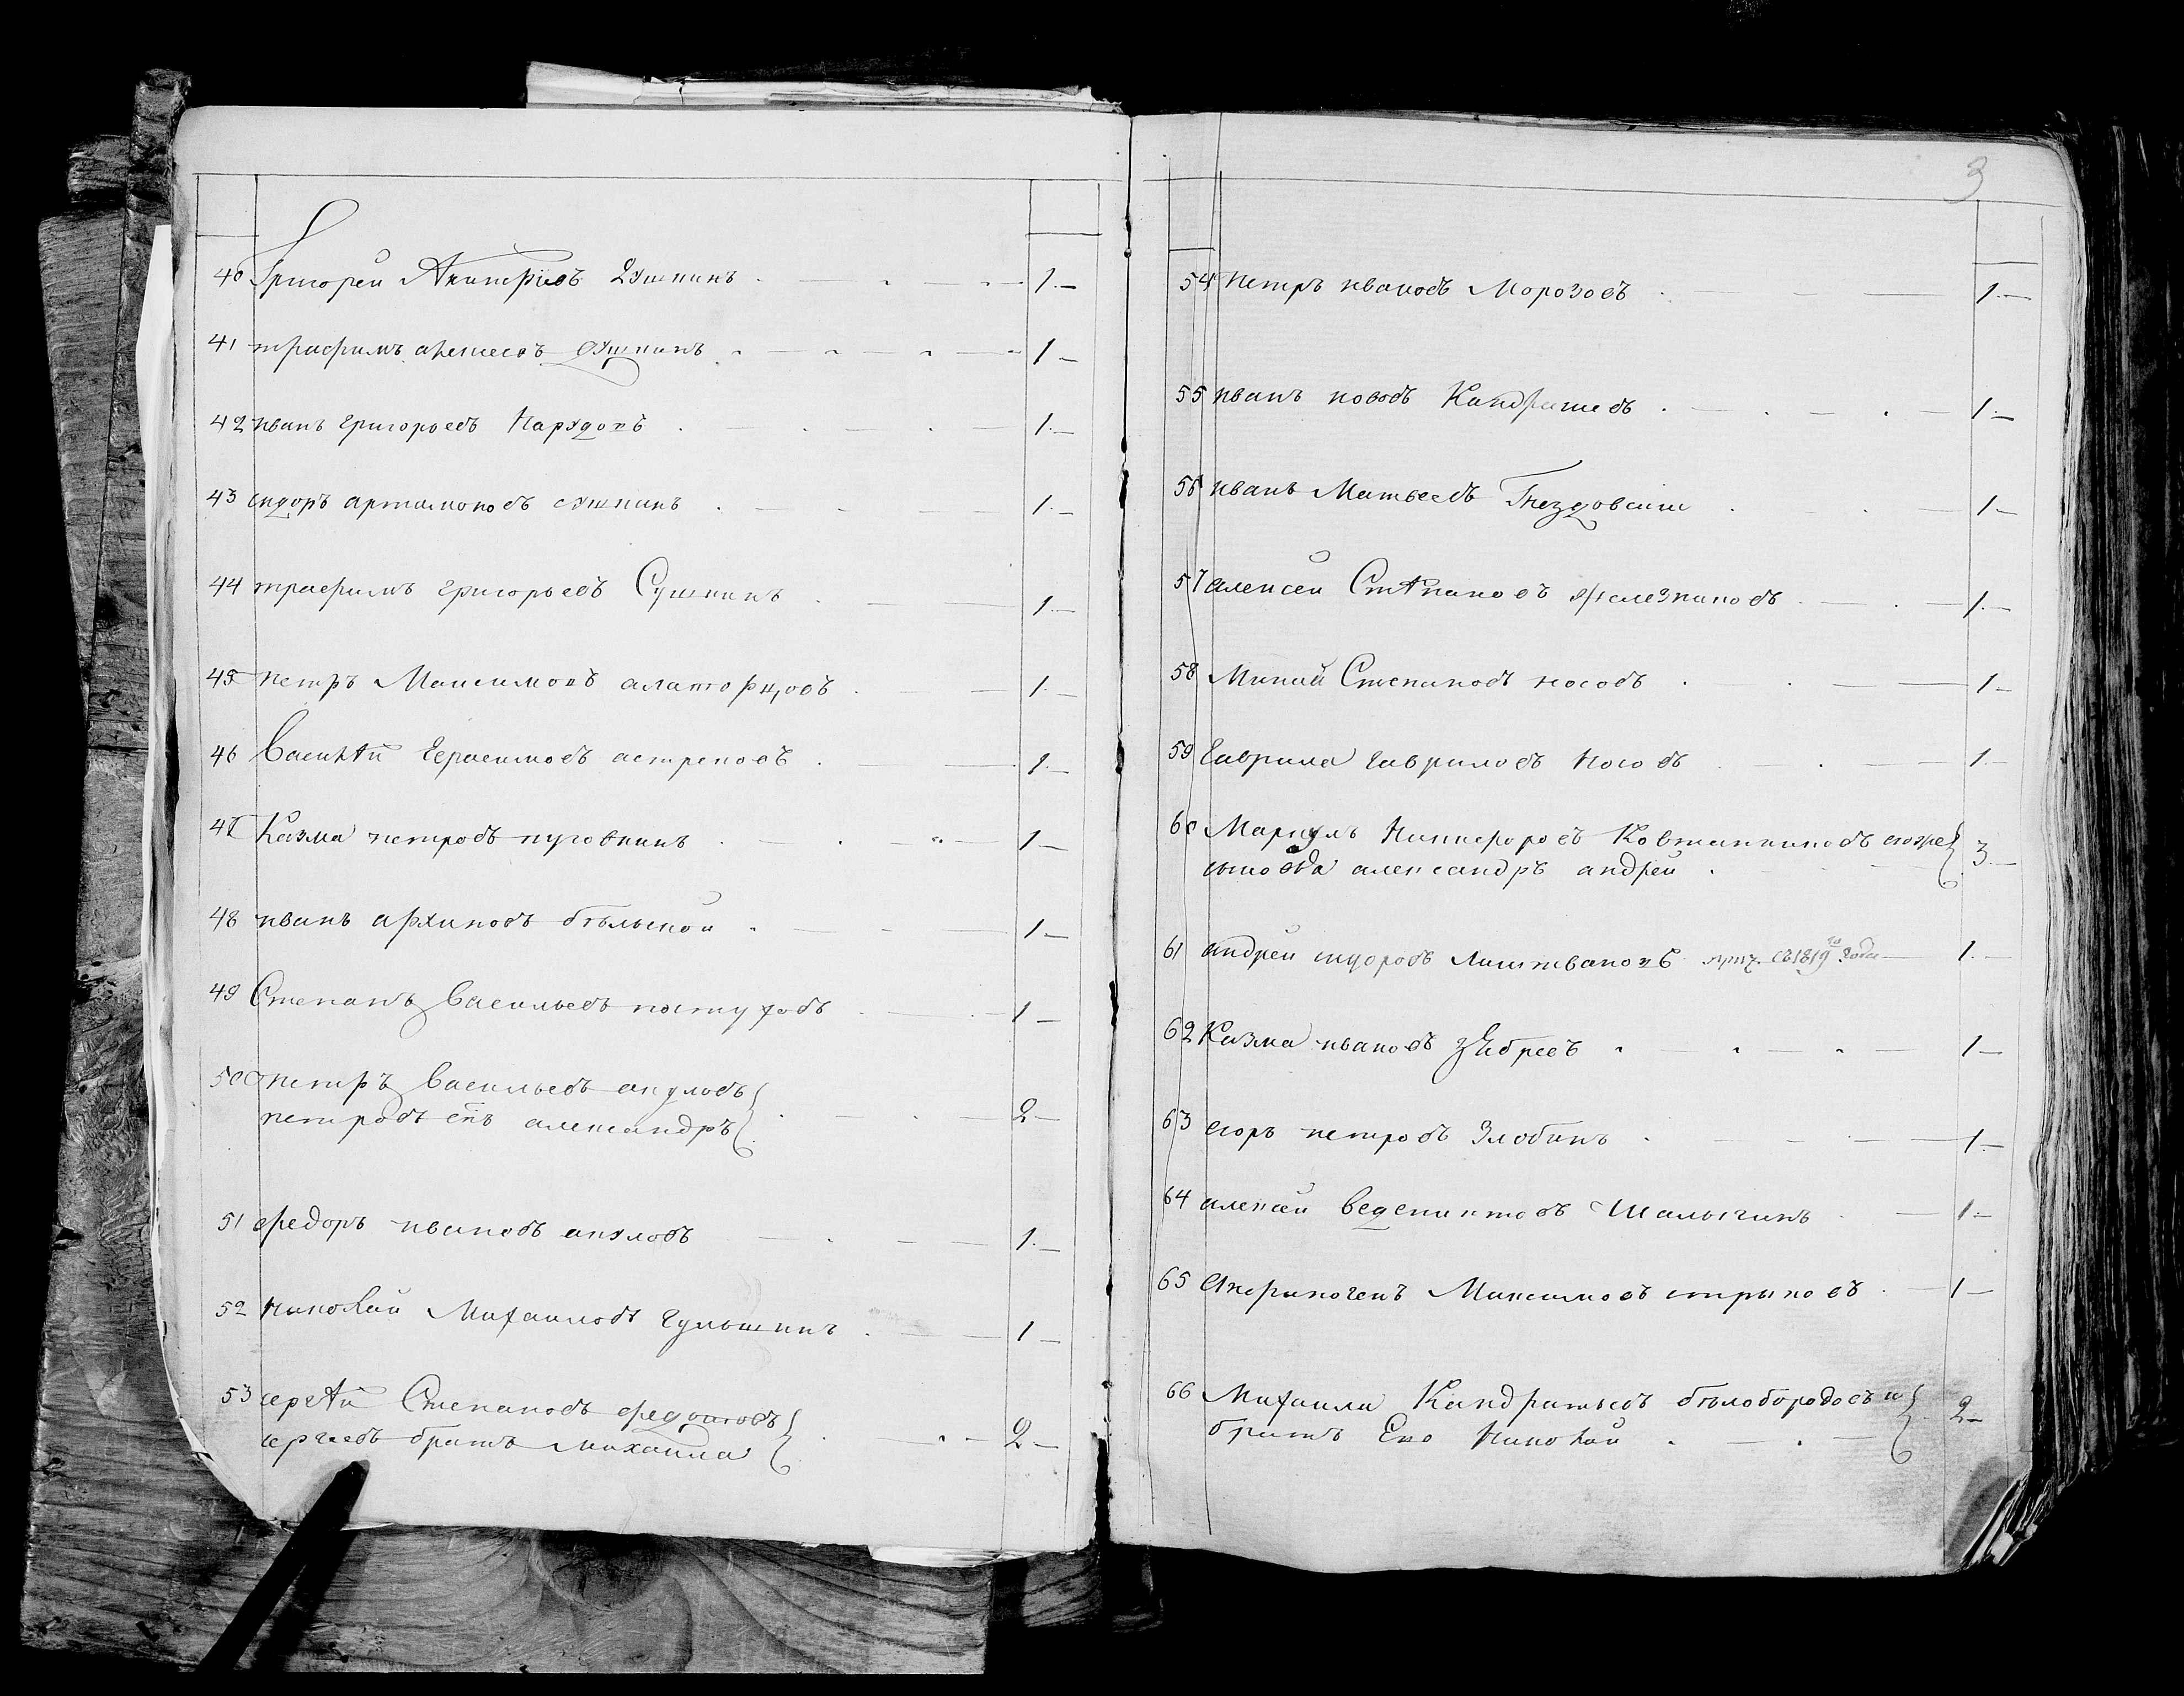 40 Григорей Дмитріевъ Сушкинъ 1
41 трафимъ Сушкинъ 1
42 иванъ григорьевъ 1
43 сидоръ артамоновъ сушкинъ 1
44 трафимъ григорьевъ Сушкинъ 1
45 петръ Максимовъ алаторцовъ 1
46 Василей Герасимовъ 1
47 Казма петровъ пуговкинъ 1
48 иванъ архиповъ бѣльской 1
49 Степанъ Васильевъ пастуховъ 1
50 петръ Васильевъ акуловъ
петровъ снъ александръ 2
51 федоръ ивановъ акуловъ 1
52 николай Михаиловъ гульшинъ 1
53 сергей Степановъ федотовъ
сергеевъ братъ михаила 2
3
54 петръ ивановъ Морозовъ 1
55 иванъ Кандрашевъ 1
56 иванъ Матвеевъ Гнездовский 1
57 алексей Степановъ железниковъ 1
58 Минай Степановъ носовъ 1
59 Гаврила гавриловъ носовъ 1
60 Маркулъ Никифоровъ Кафтанниковъ егоже
сыновья александръ андрей 3
61 андрей сидоровъ Лашмановъ съ 1819 года 1
62 Казма ивановъ 1
63 егоръ петровъ Злобинъ 1
64 алексей веденихтовъ Шалыгинъ 1
65 Анфиногенъ Максимовъ стрыковъ 1
66 Михаила Кандратьевъ бѣлобородовъ и
братъ Ево Николай 2